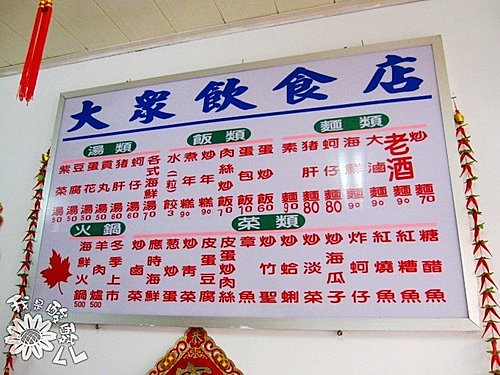 大眾飲食店
湯類
紫菜湯50
豆腐湯50
蛋花湯50
貢丸湯50
豬肝湯60
蚵仔湯70
各式海鮮湯
飯類
水餃(一粒)3
煮年糕90
炒年糕90
肉絲炒飯70
蛋包飯70
蛋炒飯60
麵類
素麵
豬肝麵80
蚵仔麵80
海鮮麵
大滷麵
老酒麵
炒麵70
火鍋
海鮮火鍋500
羊肉爐500
冬季上市
菜類
炒滷菜
應時海鮮
蔥蛋
炒青菜
皮蛋豆腐
皮蛋炒肉絲
章魚
炒竹
炒蛤蜊
炒淡菜
炒海瓜子
炸蚵仔
紅燒魚
紅糟魚
糖醋魚